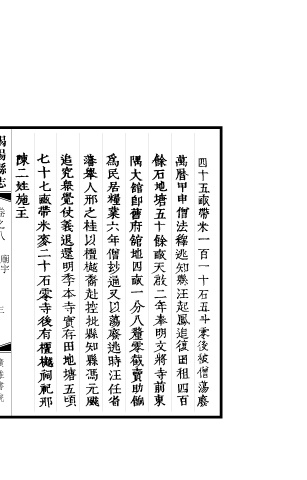 四十五畝帶米一百一十石五斗零後被僧蕩廢
萬曆甲申僧法釋逃知縣汪起鳳追復田租四百
餘石地塘五十餘畝天啟二年奉明文將寺前東
隅大館即舊府館地四畝一分八釐零截賣助餉
爲民居糧業六年僧鈔過又以蕩廢逃時汪任者
潘舉人邢之桂以檀樾裔赴控按縣知縣馮元飈
追究衆覺仗義退還明季本寺實存田地塘五頃
七十七畝帶米麥二十石零寺後有檀樾祠祀邢
陳二姓施主
揭陽縣志
卷之八
廟宇
三